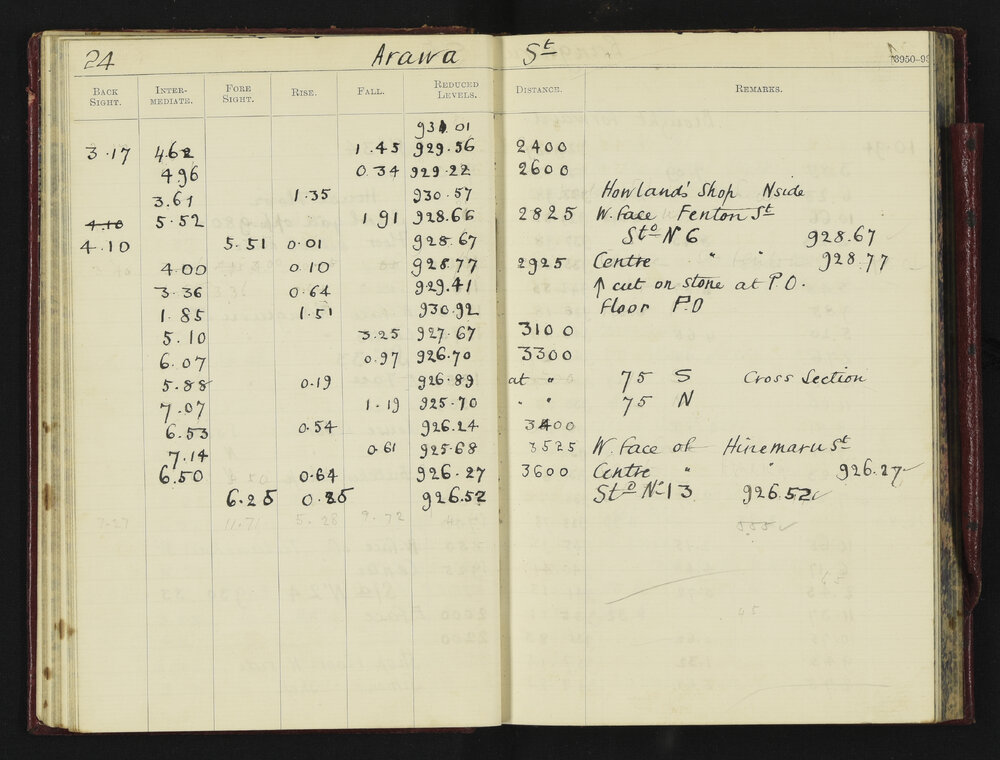 24 Arawa St
BACK SIGHT. INTER-MEDIATE. FORE SIGHT. RISE. FALL. REDUCED LEVELS. DISTANCE. REMARKS.
931.01
3.17 4.62 1.45 929.56 2400
4.96 0.34 929.22 2600
3.61 1.35 930.57 Howland's Shop N side
4.10 5.52 1.91 928.66 2825 W. face Fenton St
4.10 5.51 0.01 928.67 Std No 6 928.67
4.00 0.10 928.77 2925 Centre " " 928.77
3.36 0.64 929.41 ↑ cut on stone at P.O.
1.85 1.51 930.92 Floor P.O
5.10 3.25 927.67 3100
6.07 0.97 926.70 3300
5.88 0.19 926.89 at " 75 S Cross Section
7.07 1.19 925.70 " " 75 N
6.53 0.54 926.24 3400
7.14 0.61 925.68 3525 W. face of Hinemaru St
6.50 0.64 926.27 3600 Centre " " 926.27 ✓
6.25 0.25 926.52 Std No 13 926.52 ✓
7.27 11.71 5.28 9.72